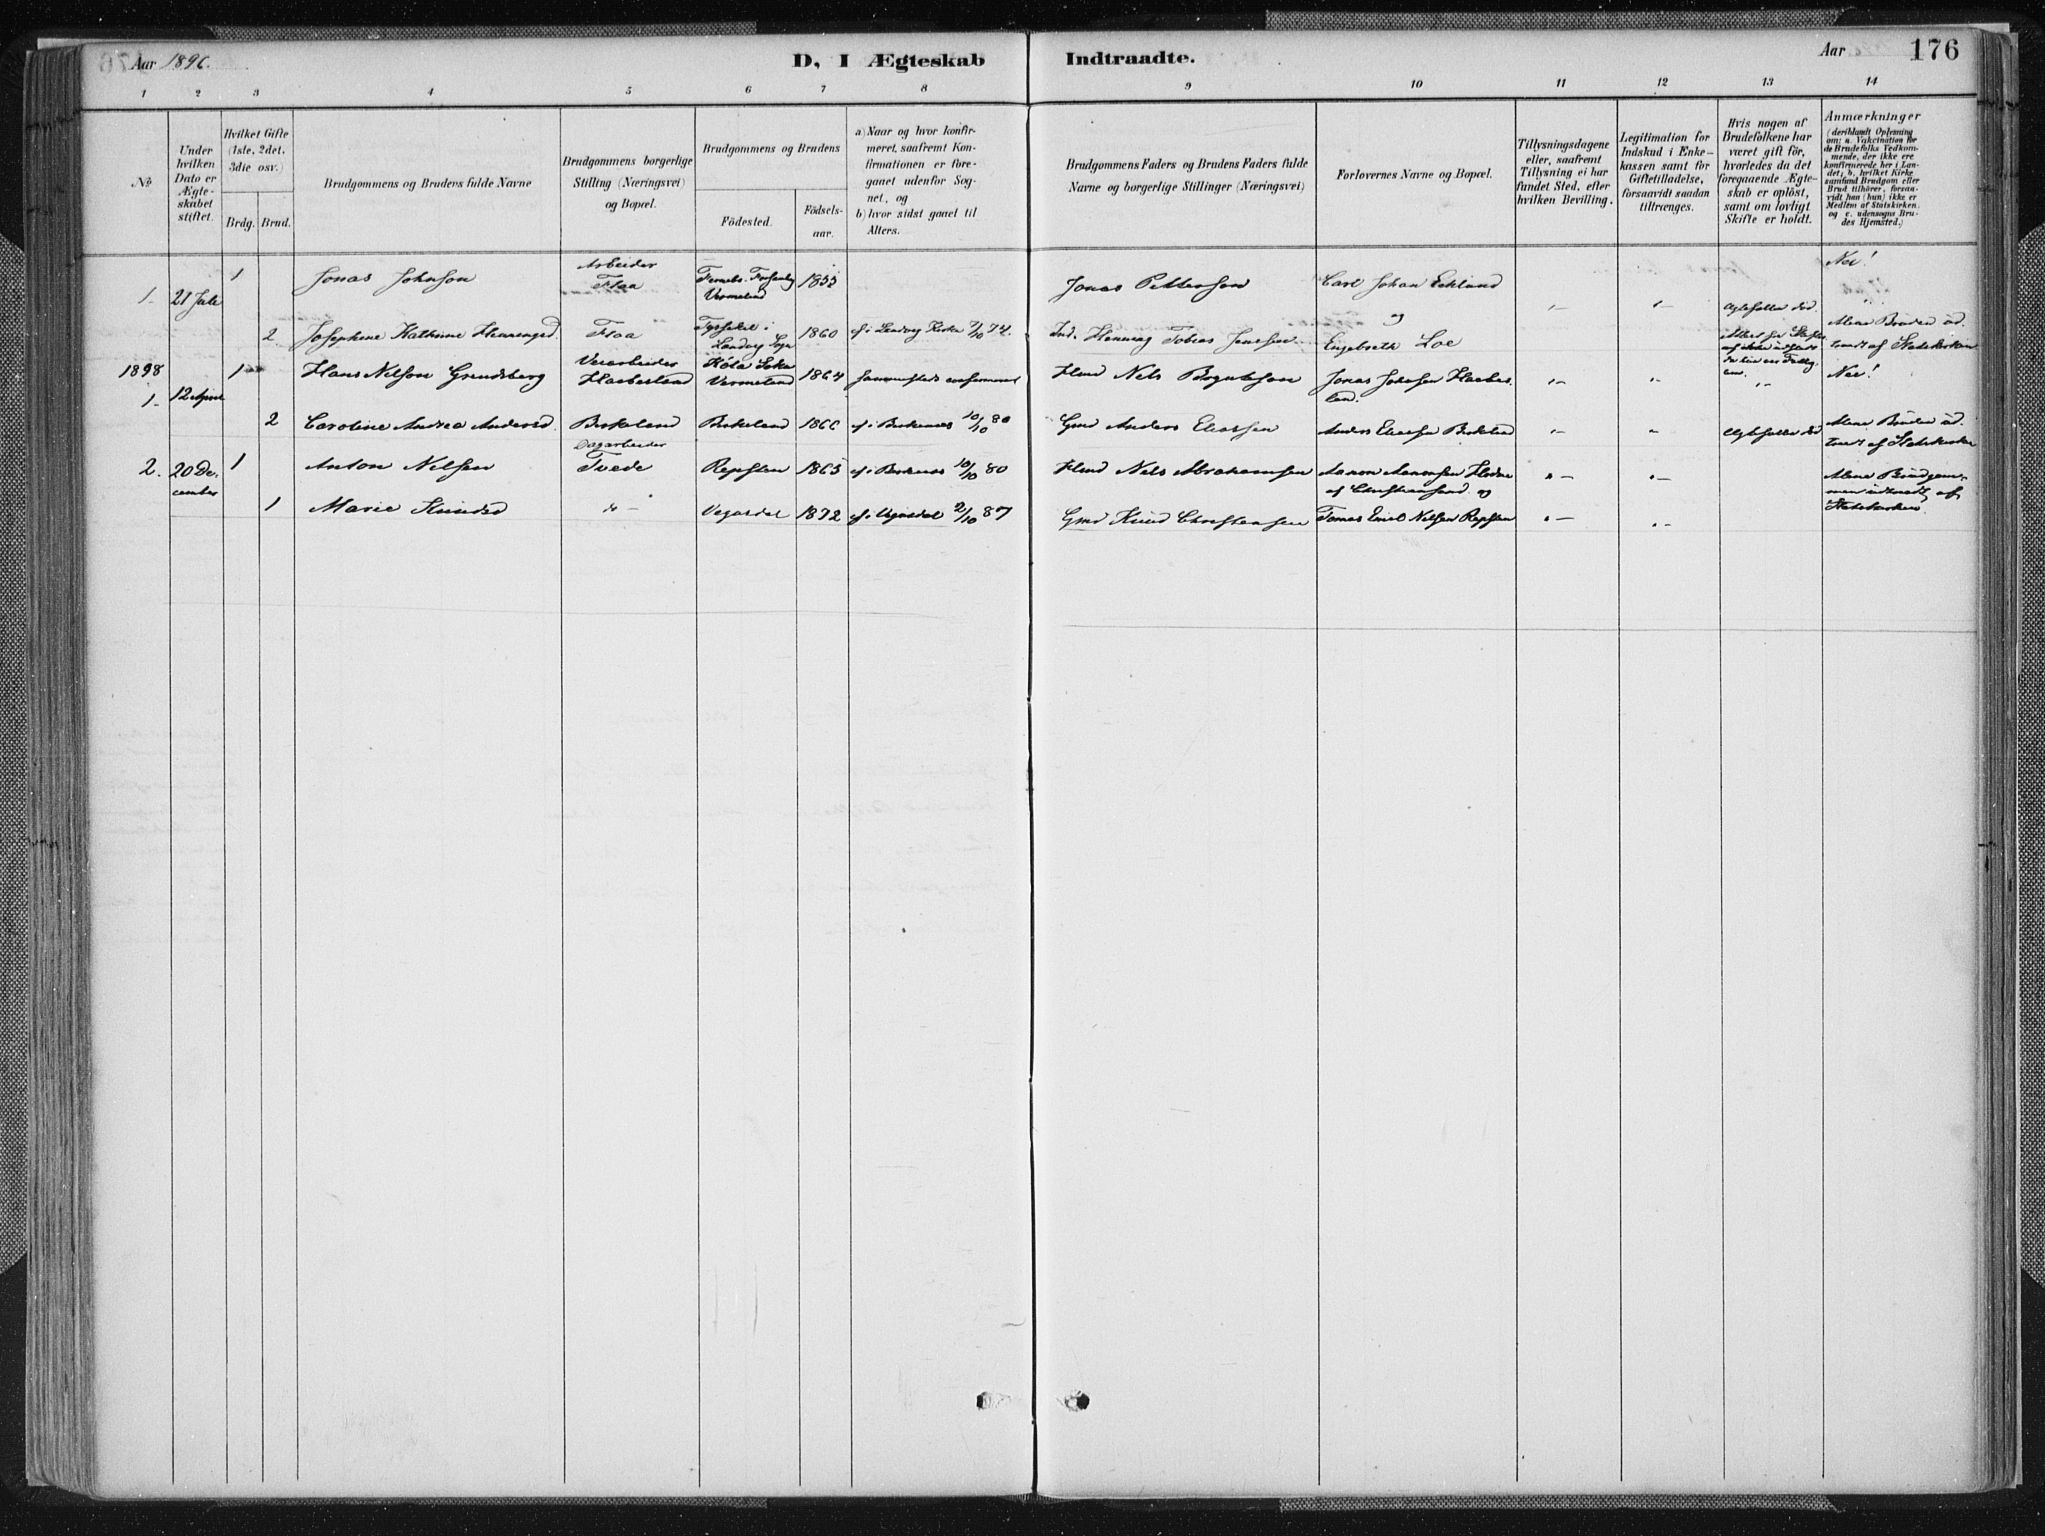 Aar 1896.
D. I Ægteskab
Indtraadte.
Aar
176
1 2 3 4 5 6 7 8 9 10 11 12 13 14
No
Under
hvilken
Dato er
Ægte-
skabet
stiftet.
Hvilket Gifte
(1ste, 2det,
3die osv.)
Brdg. Brud.
Brudgommens og Brudens fulde Navne
Brudgommens borgerlige
Stilling (Næringsvei)
og Bopæl.
Brudgommens og Brudens
Födested.
Födsels-
aar.
a) Naar og hvor konfir-
meret, saafremt Kon-
firmationen er fore-
gaaet udenfor Sog-
net, og
b) hvor sidst gaaet til
Alters.
Brudgommens Faders og Brudens Faders fulde
Navne og borgerlige Stillinger (Næringsvei)
Forlovernes Navne og Bopæl.
Tillysningsdagene
eller, saafremt
Tillysning ei har
fundet Sted, efter
hvilken Bevilling.
Legitimation for
Indskud i Enke-
kassen samt for
Giftetilladelse,
forsaavidt saadan
tiltrænges.
Hvis nogen af
Brudefolkene har
været gift för,
hvorledes da det
foregaaende Ægte-
skab er oplöst,
samt om lovligt
Skifte er holdt.
Anmærkninger
(deriblandt Oplysning
om: a. Vakcination for
de Brudefolks Vedkom-
mende, der ikke ere
konfirmerede her i Lan-
det; b. hvilket Kirke-
samfund Brudgom eller
Brud tilhörer, forsaa-
vidt han (hun) ikke er
Medlem af Statskirken,
og c. udensogns Bru-
des Hjemsted.)
1 21 Juli 1 Jonas Johnson Arbeider Flaa Vermeland 1855 Jonas Petterson Carl Johan Eklund Nei!
2 Josephine Kathrine Henningsd. Flaa Landvig Sogn 1860 cf. i Landvig Kirke 7/10 74 Ind. Henning Tobias Jensen og Engebreth Loe Ægtefælle död.
1898
1 12 April 1 Hans Nilson Grundsberg Veiarbeider Haabesland Vermeland 1864 Hmd Nels Jonas Johnson Haabesland. Nei!
2 Caroline Andrea Andersd. Birkeland Birkeland 1860 cf. i Birkenes 10/10 80 Gmd Anders Eliassen Anders Eliassen Birkeland Ægtefælle död
2. 20 December 1 Anton Nilsen Dagarbeider Tvede Repsten 1865 cf. i Birkenes 10/10 80 Hmd Nels Abrahamsen Aanon Aanonsen af Christiansand og
1 Marie Knudsd do Vegusdal 1872 cf. i Vegusdal 2/10 87 Gmd Knud Christensen Tomas Emil Nilsen Repsten